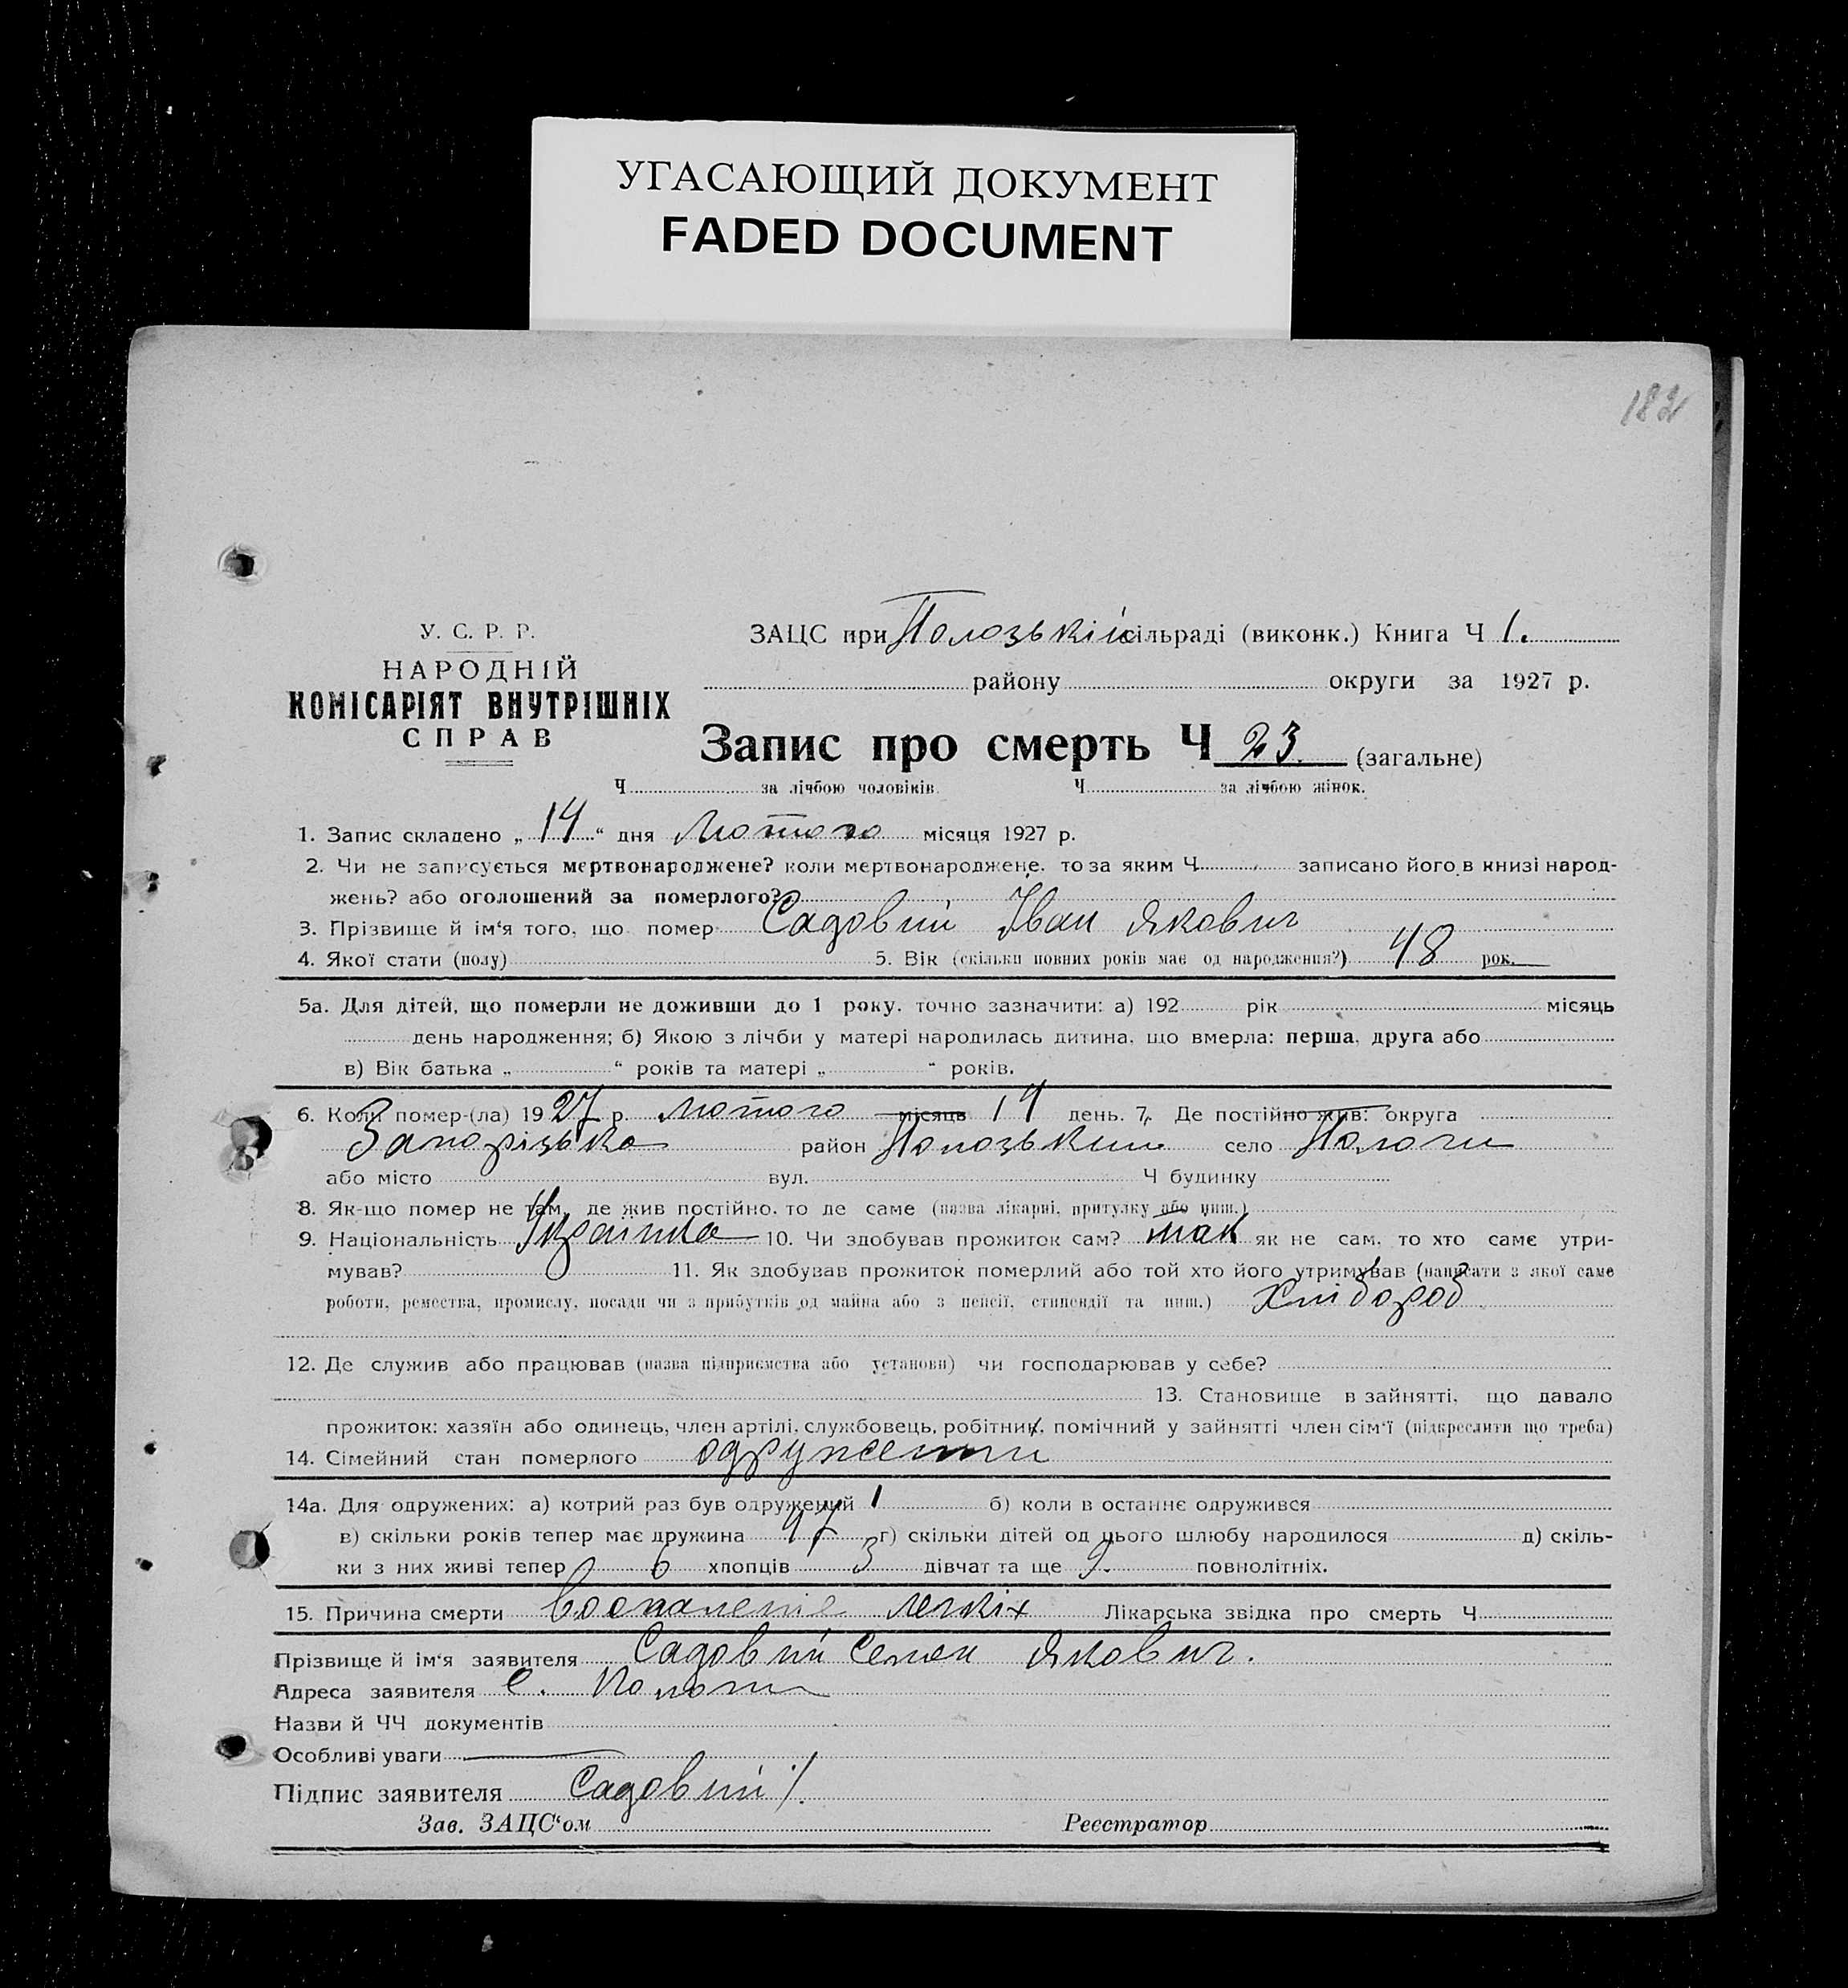 УГАСАЮЩИЙ ДОКУМЕНТ
FADED DOCUMENT
182
У. С. Р. Р.
НАРОДНІЙ
КОМІСАРІЯТ ВНУТРІШНІХ
СПРАВ
ЗАЦС при Полозькій сільраді (виконк.) Книга Ч 1.
району округи за 1927 р.
Запис про смерть Ч 23. (загальне)
Ч за лічбою чоловіків. Ч за лічбою жінок.
1. Запис складено „ 14 “ дня Лютого місяця 1927 р.
2. Чи не записується мертвонароджене? коли мертвонароджене, то за яким Ч записано його в книзі народ-
жень? або оголошений за померлого?
3. Прізвище й ім‘я того, що помер Садовий Іван Якович
4. Якої стати (полу) 5. Вік (скільки повних років має од народження?) 48 рок.
5а. Для дітей, що померли не доживши до 1 року, точно зазначити: а) 192 рік місяць
день народження; б) Якою з лічби у матері народилась дитина, що вмерла: перша, друга або
в) Вік батька „ “ років та матері „ “ років.
6. Коли помер-(ла) 1927 р. Лютого місяць 14 день. 7. Де постійно жив: округа
Запорізька район Полозький село Пологи
або місто вул. Ч будинку
8. Як-що помер не там, де жив постійно, то де саме (назва лікарні, притулку або инш.)
9. Національність Українка 10. Чи здобував прожиток сам? так як не сам, то хто саме утри-
мував? 11. Як здобував прожиток померлий або той хто його утримував (написати з якої саме
роботи, ремества, промислу, посади чи з прибутків од майна або з пенсії, стипендії та инш.) Хлібороб
12. Де служив або працював (назва підприємства або установи) чи господарював у себе?
13. Становище в зайнятті, що давало
прожиток: хазяїн або одинець, член артілі, службовець, робітник, помічний у зайнятті член сім‘ї (підкреслити що треба)
14. Сімейний стан померлого одружений
14а. Для одружених: а) котрий раз був одружений 1 б) коли в останнє одружився
в) скільки років тепер має дружина 47 г) скільки дітей од цього шлюбу народилося д) скіль-
ки з них живі тепер 6 хлопців 3 дівчат та ще 9. повнолітніх.
15. Причина смерти Воспаление легкіх Лікарська звідка про смерть Ч
Прізвище й ім‘я заявителя Садовий Семен Якович.
Адреса заявителя с. Пологи
Назви й ЧЧ документів
Особливі уваги
Підпис заявителя Садовий
Зав. ЗАЦС‘ом Реєстратор